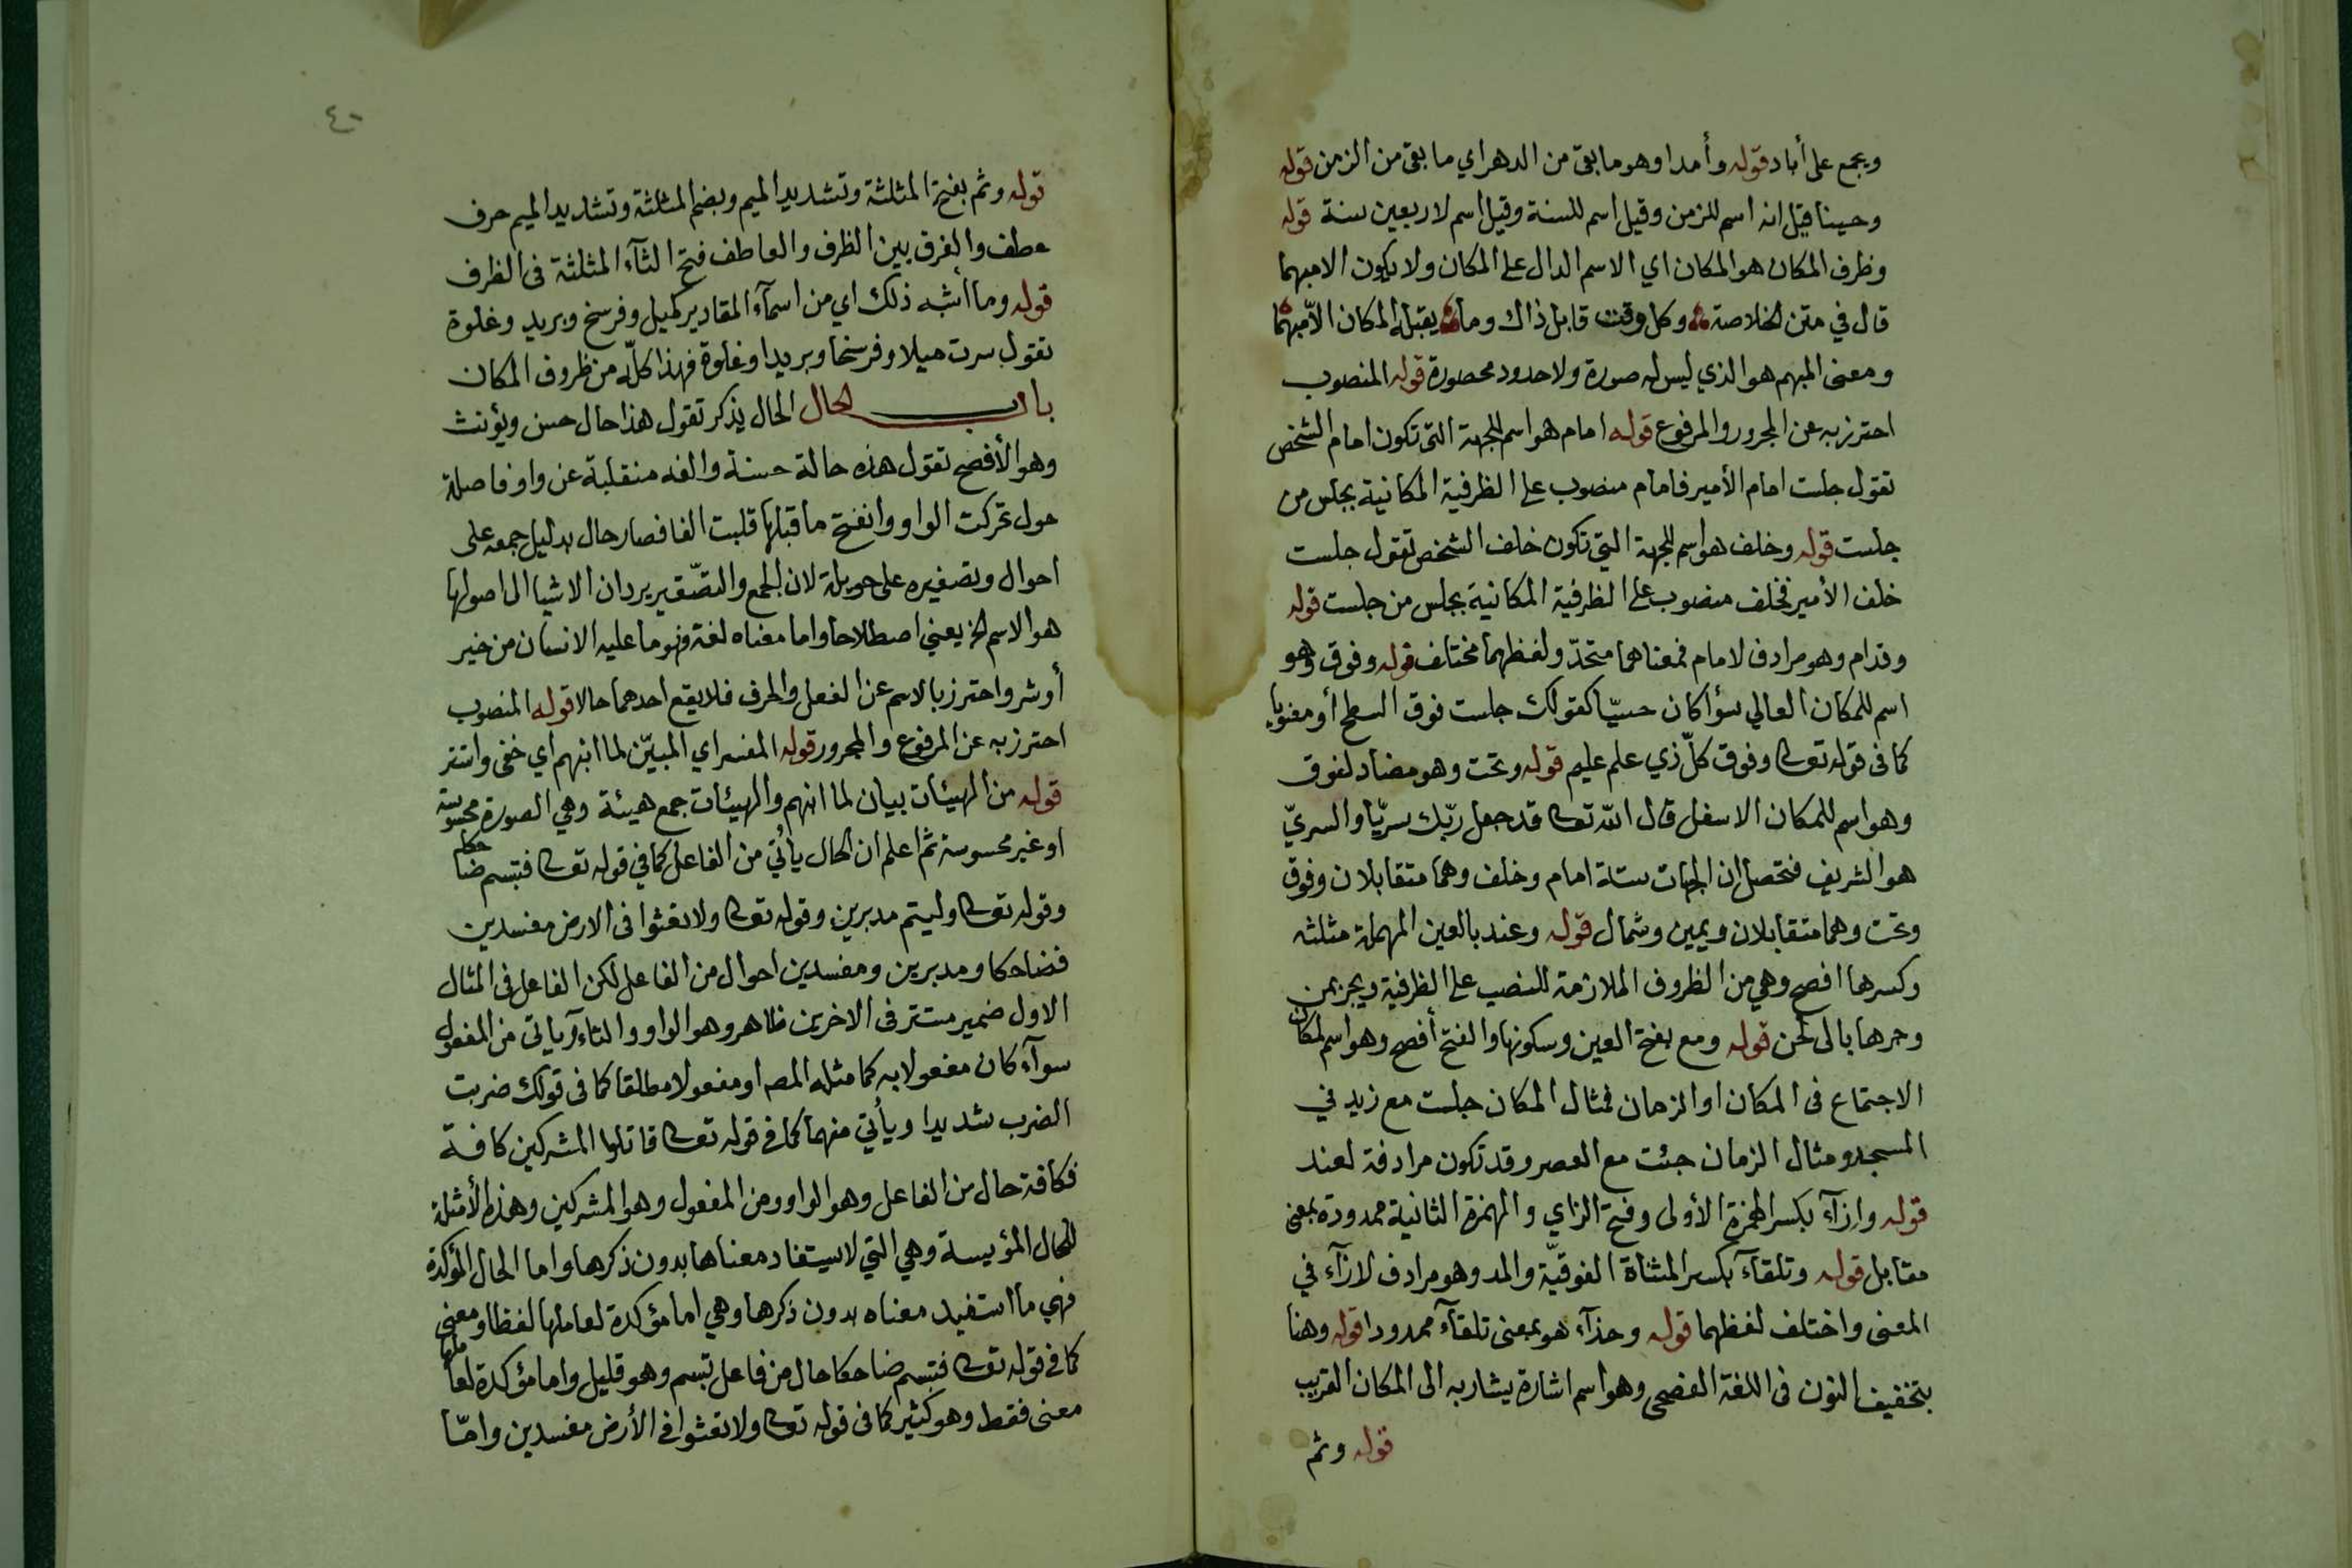 ويجمع على أباد قوله وأمدا وهو ما بقى من الدهر اي ما بقى من الزمن قوله
وحينا قيل انه اسم للزمن وقيل اسم للسنة وقيل اسم لاربعين سنة قوله
وظرف المكان هو المكان اي الاسم الدال على المكان ولا يكون الا مبهما
قال في متن الخلاصة وكل وقت قابل ذاك وما يقبله المكان الا مبهما
ومعنى المبهم هو الذي ليس له صورة ولا حدود محصورة قوله المنصوب
احترز به عن المجرور والمرفوع قوله امام هو اسم للجهة التى تكون امام الشخص
تقول جلست امام الأمير فامام منصوب على الظرفية المكانية بجلس من
جلست قوله وخلف هو اسم للجهة التي تكون خلف الشخص تقول جلست
خلف الأمير فخلف منصوب على الظرفية المكانية بجلس من جلست قوله
وقدام وهو مرادف لامام فمعناهما متحدّ ولفظهما مختلف قوله وفوق وهو
اسم للمكان العالي سوأ كان حسيّا كقولك جلست فوق السطح أو معنويا
كما فى قوله تعا وفوق كلّ ذي علم عليم قوله وتحت وهو مضاد لفوق
وهو اسم للمكان الاسفل قال الله تعا قد جعل ربّك سريّا والسريّ
هو الشريف فتحصل ان الجهات ستة امام وخلف وهما متقابلان وفوق
وتحت وهما متقابلان ويمين وشمال قوله وعند بالعين المهملة مثلثه
وكسرها افصح وهي من الظروف الملازمة للنصب على الظرفية ويجز بمن
وجرها بالى لحن قوله ومع بفتح العين وسكونها والفتح أفصح وهو اسم لمكان
الاجتماع فى المكان او الزمان فمثال المكان جلست مع زيد في
المسجد ومثال الزمان جئت مع العصر وقد تكون مرادفة لعند
قوله وازآء بكسر الهمزة الأولى وفتح الزاي والهمزة الثانية ممدودة بمعنى
مقابل قوله وتلقآء بكسر المثناة الفوقيّة والمد وهو مرادف لازآء في
المعنى واختلف لفظهما قوله وحذآء هو بمعنى تلقآء ممدودا قوله وهنا
بتخفيف النون فى اللغة الفصحى وهو اسم اشارة يشار به الى المكان القريب
قوله وثم
٤٠
قوله وثم بفتح المثلثة وتشديد الميم وبضم المثلثة وتشديد الميم حرف
عطف والفرق بين الظرف والعاطف فتح الثآء المثلثة فى الظرف
قوله وما أشبه ذلك اي من اسمآء المقادير كميل وفرسخ وبريد وغلوة
تقول سرت ميلا وفرسخا وبريدا وغلوة فهذا كلّه من ظروف المكان
باب الحال الحال يذكر تقول هذا حال حسن ويؤنث
وهو الأفصح تقول هذه حالة حسنة والفه منقلبة عن واو فاصله
حول تحركت الواو وانفتح ما قبلها قلبت الفا فصار حال بدليل جمعه على
احوال وتصغيره على حويلة لان الجمع والتصّغير يردان الاشيا الى اصولها
هو الاسم الخ يعني اصطلاحا واما معناه لغة فهو ما عليه الانسان من خير
أو شر واحترز بالاسم عن الفعل والحرف فلا يقع احدهما حالا قوله المنصوب
احترز به عن المرفوع والمجرور قوله المفسر اي المبيّن لما انبهم اي خفى واستتر
قوله من الهيئات بيان لما انبهم والهيئات جمع هيئة وهي الصورة محسوسة
او غير محسوسة ثم اعلم ان الحال يأتي من الفاعل كما في قوله تعا فتبسم ضاحكا
وقوله تعا وليتم مدبرين وقوله تعا ولا تعثوا فى الارض مفسدين
فضاحكا ومدبرين ومفسدين احوال من الفاعل لكن الفاعل فى المثال
الاول ضمير مستتر فى الاخرين ظاهر وهو الواو والتاء ويأتى من المفعول
سوآء كان مفعولا به كما مثله المص او مفعولا مطلقا كما فى قولك ضربت
الضرب شديدا ويأتي منهما كما في قوله تعا قاتلوا المشركين كافة
فكافة حال من الفاعل وهو الواو ومن المفعول وهو المشركين وهذه الأمثلة
للحال المؤيسة وهي التي لا يستفاد معناها بدون ذكرها واما الحال المؤكدة
فهي ما استفيد معناه بدون ذكرها وهي اما مؤكدة لعاملها لفظا ومعنى
كما فى قوله تعا فتبسم ضاحكا حال من فاعل تبسم وهو قليل واما مؤكدة لعاملها
معنى فقط وهو كثير كما فى قوله تعا ولا تعثوا في الأرض مفسدين وامّا